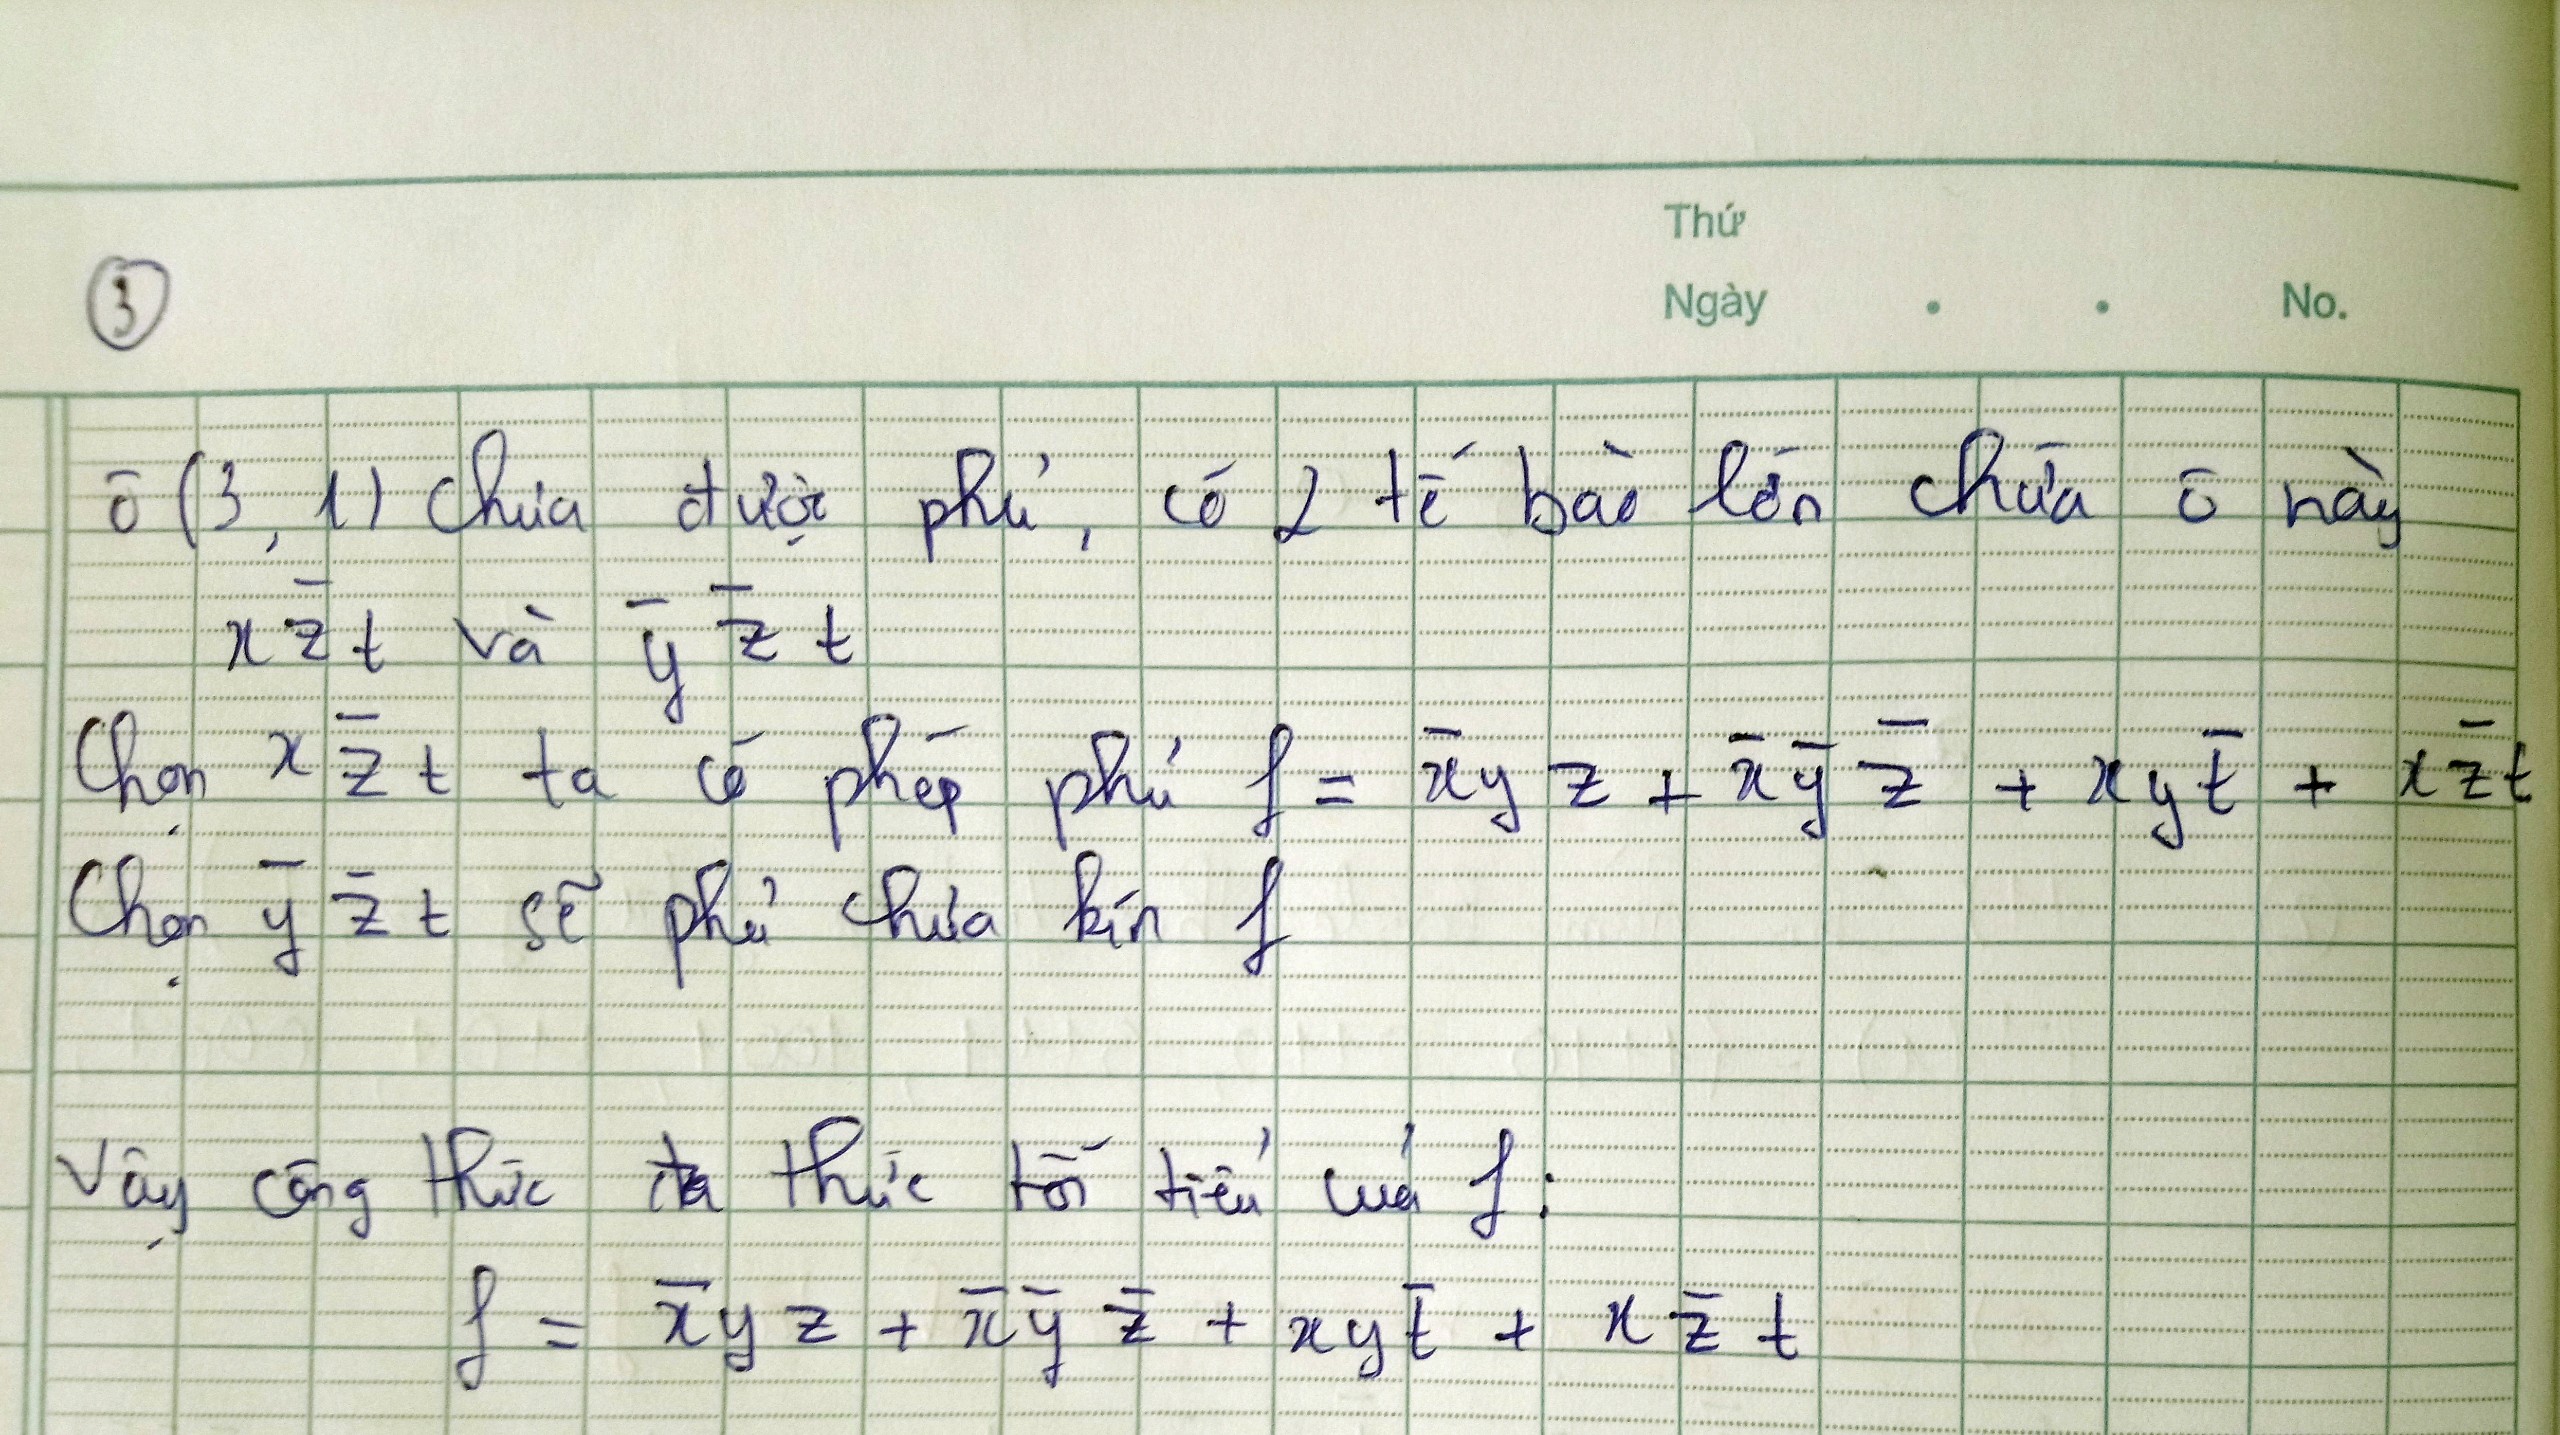 Thứ
③
Ngày . . No.
ô (3, 1) chưa được phủ, có 2 tế bào lớn chứa ô này
x z̄ t và ȳ z̄ t
Chọn x z̄ t ta có phép phủ f = x̄ y z + x̄ ȳ z̄ + x y t̄ + x z̄ t
Chọn ȳ z̄ t sẽ phủ chưa kín f
Vậy công thức đa thức tối tiểu của f:
f = x̄ y z + x̄ ȳ z̄ + x y t̄ + x z̄ t